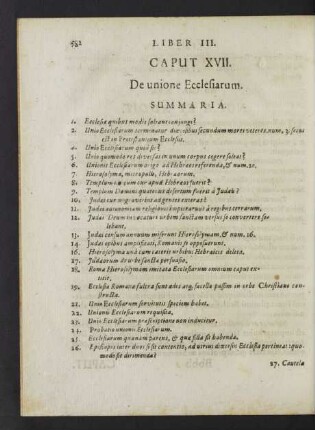 582 LIBER III.
CAPUT XVII.
De unione Ecclesiarum.
SUMMARIA.
1. Ecclesiæ quibus mediis soleant conjungi?
2. Unio Ecclesiarum terminatur diœcesibus secundum mores veteres. num. 3. secus
est in
4. Unio Ecclesiarum quid sit?
5. Unio quomodo res diversas in unum corpus cogere soleat?
6. Unio Ecclesiarum origo ad Hebræos referenda, & num. 20.
7. Hierosolyma, metropolis, Hebræorum.
8. Templum unicum cur apud Hebræos fuerit?
9. Templum Domini quatenus desertum fuerit à Judæis?
10. Judæi cur migraverint ad gentes exteras?
11. Judæi
12. Judæi Deum invocaturi urbem sanctam versus se convertere so-
lebant.
13. Judæi censum annuum miserunt Hierosolymam, & num. 16.
14. Judæi opibus amplificati, Romanis se opposuerunt.
16. Hierosolyma und cum cæteris urbibus Hebraicis deleta.
17. Judæorum
18. Roma Hierosolymam imitata Ecclesiarum omnium caput ex-
titit.
19. Ecclesia Romana fulcra sunt ades arg. sacellæ passim in orbe Christiano con-
structa.
21. Unio Ecclesiarum servitutis speciem habet.
22. Unionis Ecclesiarum requisita.
23. Unio Ecclesiarum præscriptione non inducitur.
24. Probatio unionis Ecclesiarum.
25. Ecclesiarum quænam parens, & quæ filia sit habenda.
26. Episcopis inter duos si sit contentio, ad utrius diœcesin Ecclesia pertineat: quo-
modo sit dirimenda?
27. Cautela